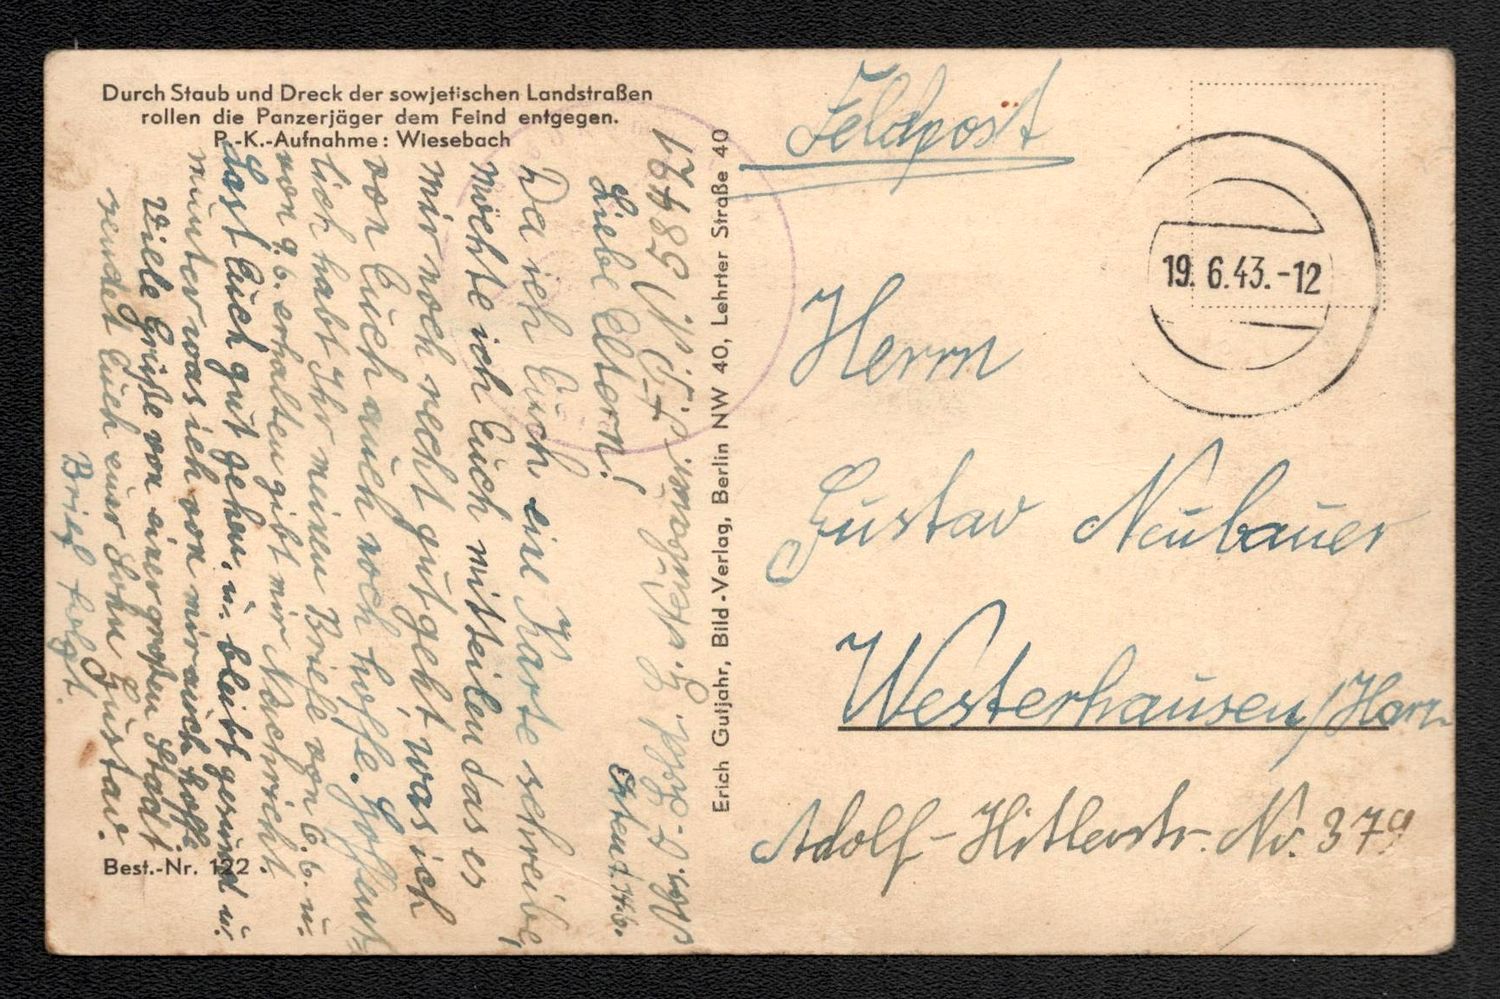 Durch Staub und Dreck der sowjetischen Landstraßen
rollen die Panzerjäger dem Feind entgegen.
P.-K.-Aufnahme: Wiesebach
Abs. O.-Sold. G. Neubauer. F.P.
Osten d. 14.6.
Liebe Eltern!
Da ich Euch eine Karte schreibe,
möchte ich Euch mitteilen das es
mir noch recht gut geht, was ich
von Euch auch noch hoffe. Hoffent-
lich habt Ihr meinen Briefe von 6.6. u.
von 9.6. erhalten gibt mir Nachricht.
Last Euch gut gehen, u. bleibt gesund u.
munter was ich von mir auch hoffe
Viele Grüße von einer großen Stadt
sendet Euch euer Sohn Gustav.
Brief folgt.
Best.-Nr. 122
Erich Gutjahr, Bild-Verlag, Berlin NW 40, Lehrter Straße 40
Feldpost
19.6.43.-12
Herrn
Gustav Neubauer
Westerhausen/Harz
Adolf-Hitlerstr. Nr. 379